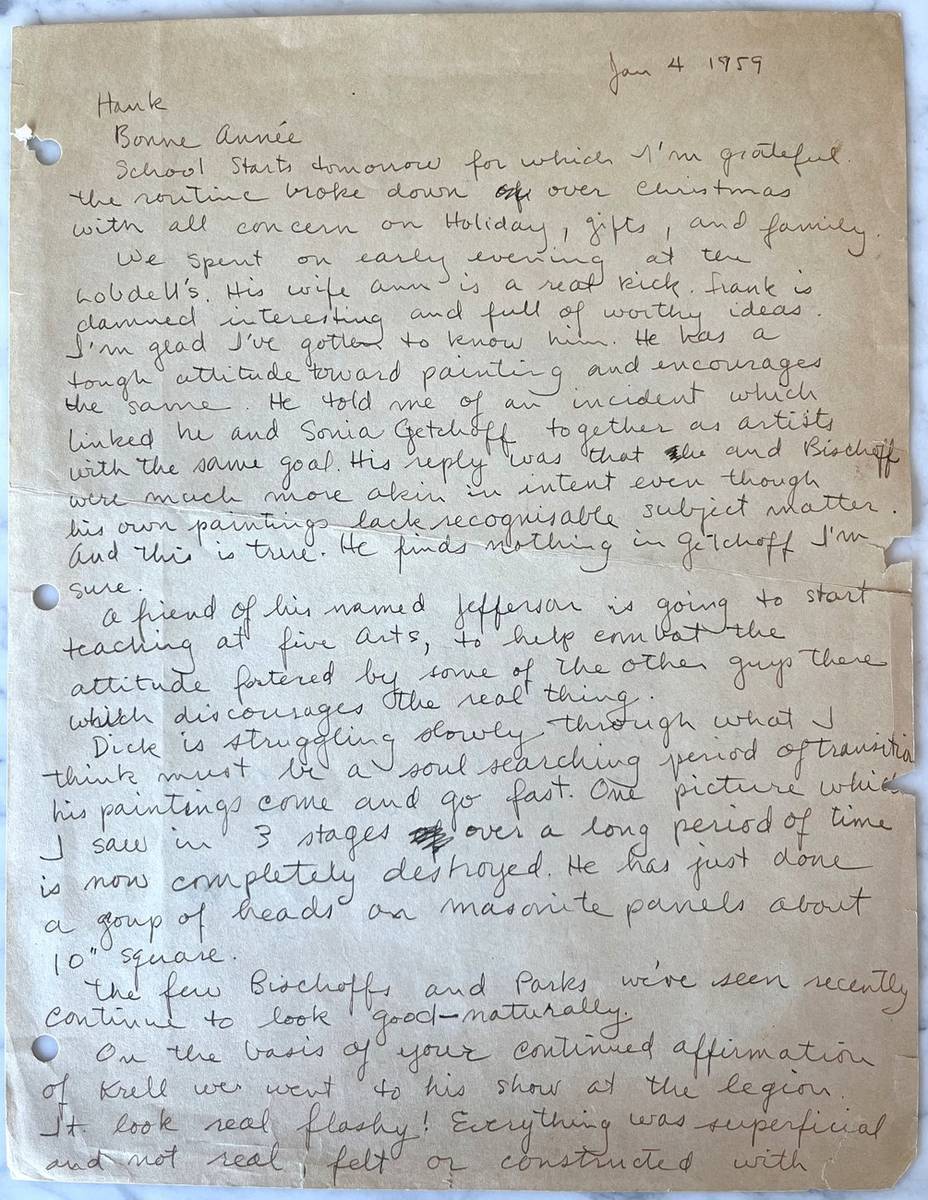 Jan 4 1959
Hank
Bonne Année
School Starts tomorrow for which I'm grateful.
the routine broke down over Christmas
with all concern on Holiday, gifts, and family.
We spent on early evening at the
Lobdell's. His wife ann is a real kick. Frank is
damned interesting and full of worthy ideas.
I'm glad I've gotten to know him. He has a
tough attitude toward painting and encourages
the same. He told me of an incident which
linked he and Sonia Getchoff together as artists
with the same goal. His reply was that he and Bischoff
were much more akin in intent even though
his own paintings lack recognisable subject matter.
And this is true. He finds nothing in Getchoff I'm
sure.
A friend of his named Jefferson is going to start
teaching at fine Arts, to help combat the
attitude fostered by some of the other guys there
which discourages the real thing.
Dick is struggling slowly through what I
think must be a soul searching period of transitio
his paintings come and go fast. One picture which
I saw in 3 stages over a long period of time
is now completely destroyed. He has just done
a goup of heads on masonite panels about
10" square.
The few Bischoffs and Parks we've seen recently
continue to look good—naturally.
On the basis of your continued affirmation
of Krell we went to his show at the legion.
It look real flashy! Everything was superficial
and not real felt or constructed with